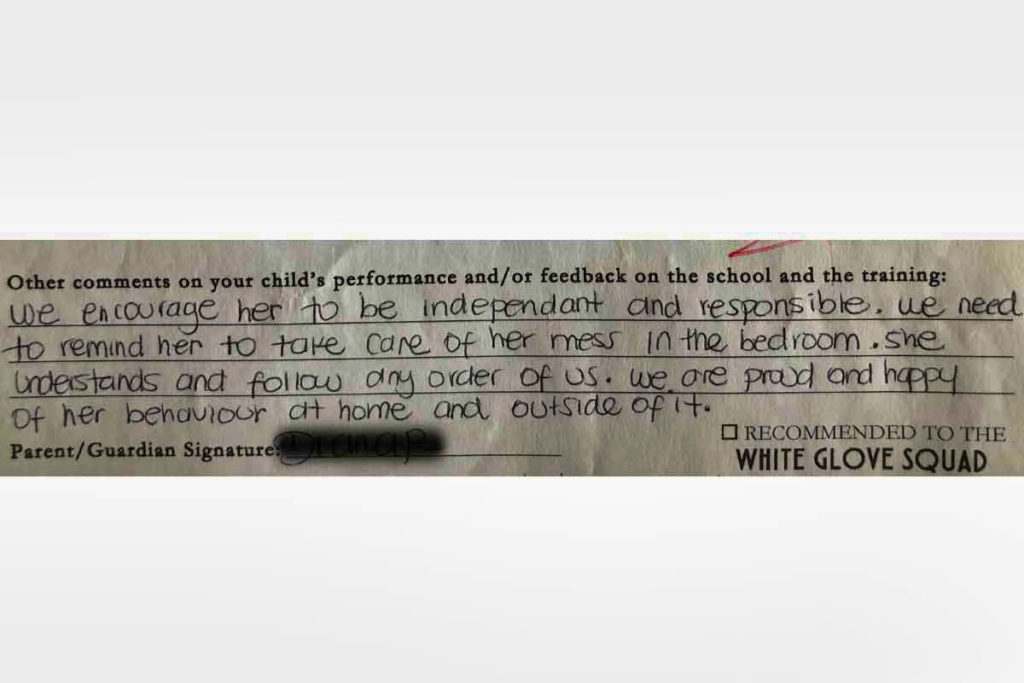 Other comments on your child's performance and/or feedback on the school and the training:
we encourage her to be independant and responsible. we need
to remind her to take care of her mess in the bedroom. she
understands and follow any order of us. we are proud and happy
of her behaviour at home and outside of it.
Parent/Guardian Signature:
☐ RECOMMENDED TO THE
WHITE GLOVE SQUAD